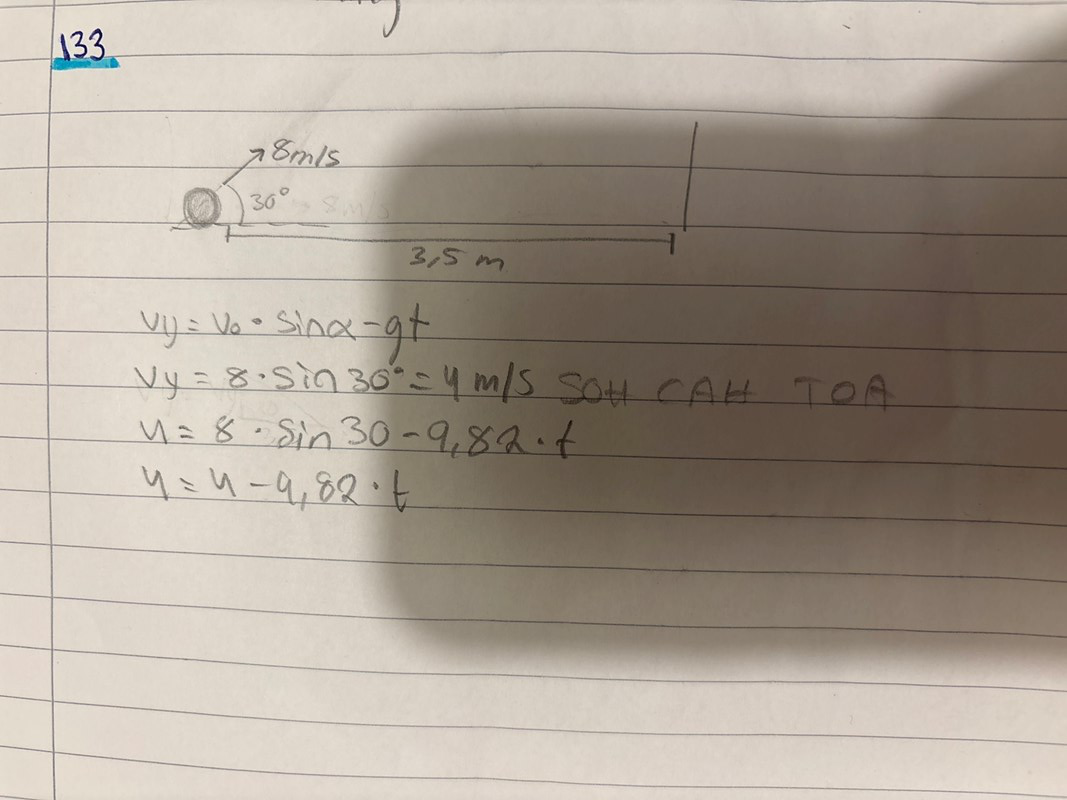 133
8m/s
30°
3,5 m
vy = v₀ · sinα - gt
vy = 8 · sin 30° = 4 m/s SOH CAH TOA
4 = 8 · sin 30 - 9,82 · t
4 = 4 - 9,82 · t